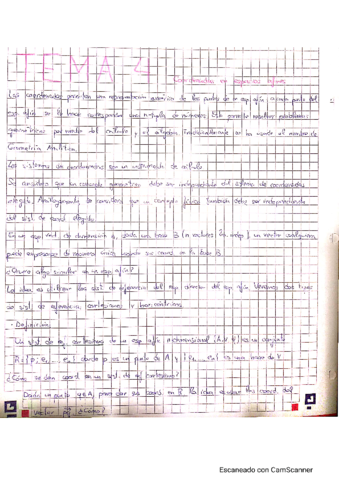 TEMA 4
Coordenadas en espacios afines
Las coordenadas permiten una representación numérica de los puntos de un esp afín, a cada punto del
esp. afín se le hace corresponder una de números. Esto permite resolver problemas
geométricos por medio del cálculo y el álgebra. Tradicionalmente se ha usado el nombre de
Geometría Analítica.
Los sistemas de coordenadas son un instrumento de cálculo
Se considera que un concepto geométrico debe ser independiente del sistema de coordenadas
elegido. Análogamente se considera que un concepto físico también debe ser independiente
del sist de coord elegido.
En un esp vect de dimensión n, dada una base B (n vectores lin indep) un vector cualquiera
puede expresarse de manera única usando sus coord en la base B.
¿Ocurre algo similar en un esp afín?
La idea es utilizar los de referencia del esp director del esp afín. Veremos dos tipos
de sist de referencia, cartesianos y baricéntricos.
- Definición
Un sist de ref cartesiano de un esp afín n-dimensional (A, V, φ) es un conjunto
R = {p; e₁, ..., eₙ} donde p es un punto de A y {e₁, ..., eₙ} es una base de V
¿Cómo se dan coord en un sist. de ref cartesiano?
Dado un punto q∈A, para dar sus coord en R la idea es usar las coord. del
vector pq. ¿Cómo?
Escaneado con CamScanner